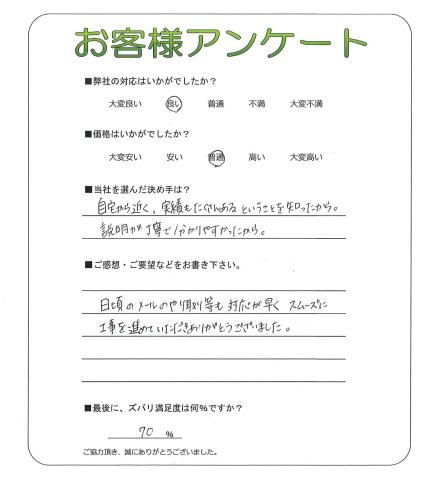 お客様アンケート
■弊社の対応はいかがでしたか?
大変良い 良い 普通 不満 大変不満
■価格はいかがでしたか?
大変安い 安い 普通 高い 大変高い
■当社を選んだ決め手は?
自宅から近く、実績もたくさんある ということを知ったから。
説明が丁寧で分かりやすかったから。
■ご感想・ご要望などをお書き下さい。
日頃のメールのやり取り等も 対応が早く スムーズに
工事を進めていただきありがとうございました。
■最後に、ズバリ満足度は何%ですか?
90 %
ご協力頂き、誠にありがとうございました。